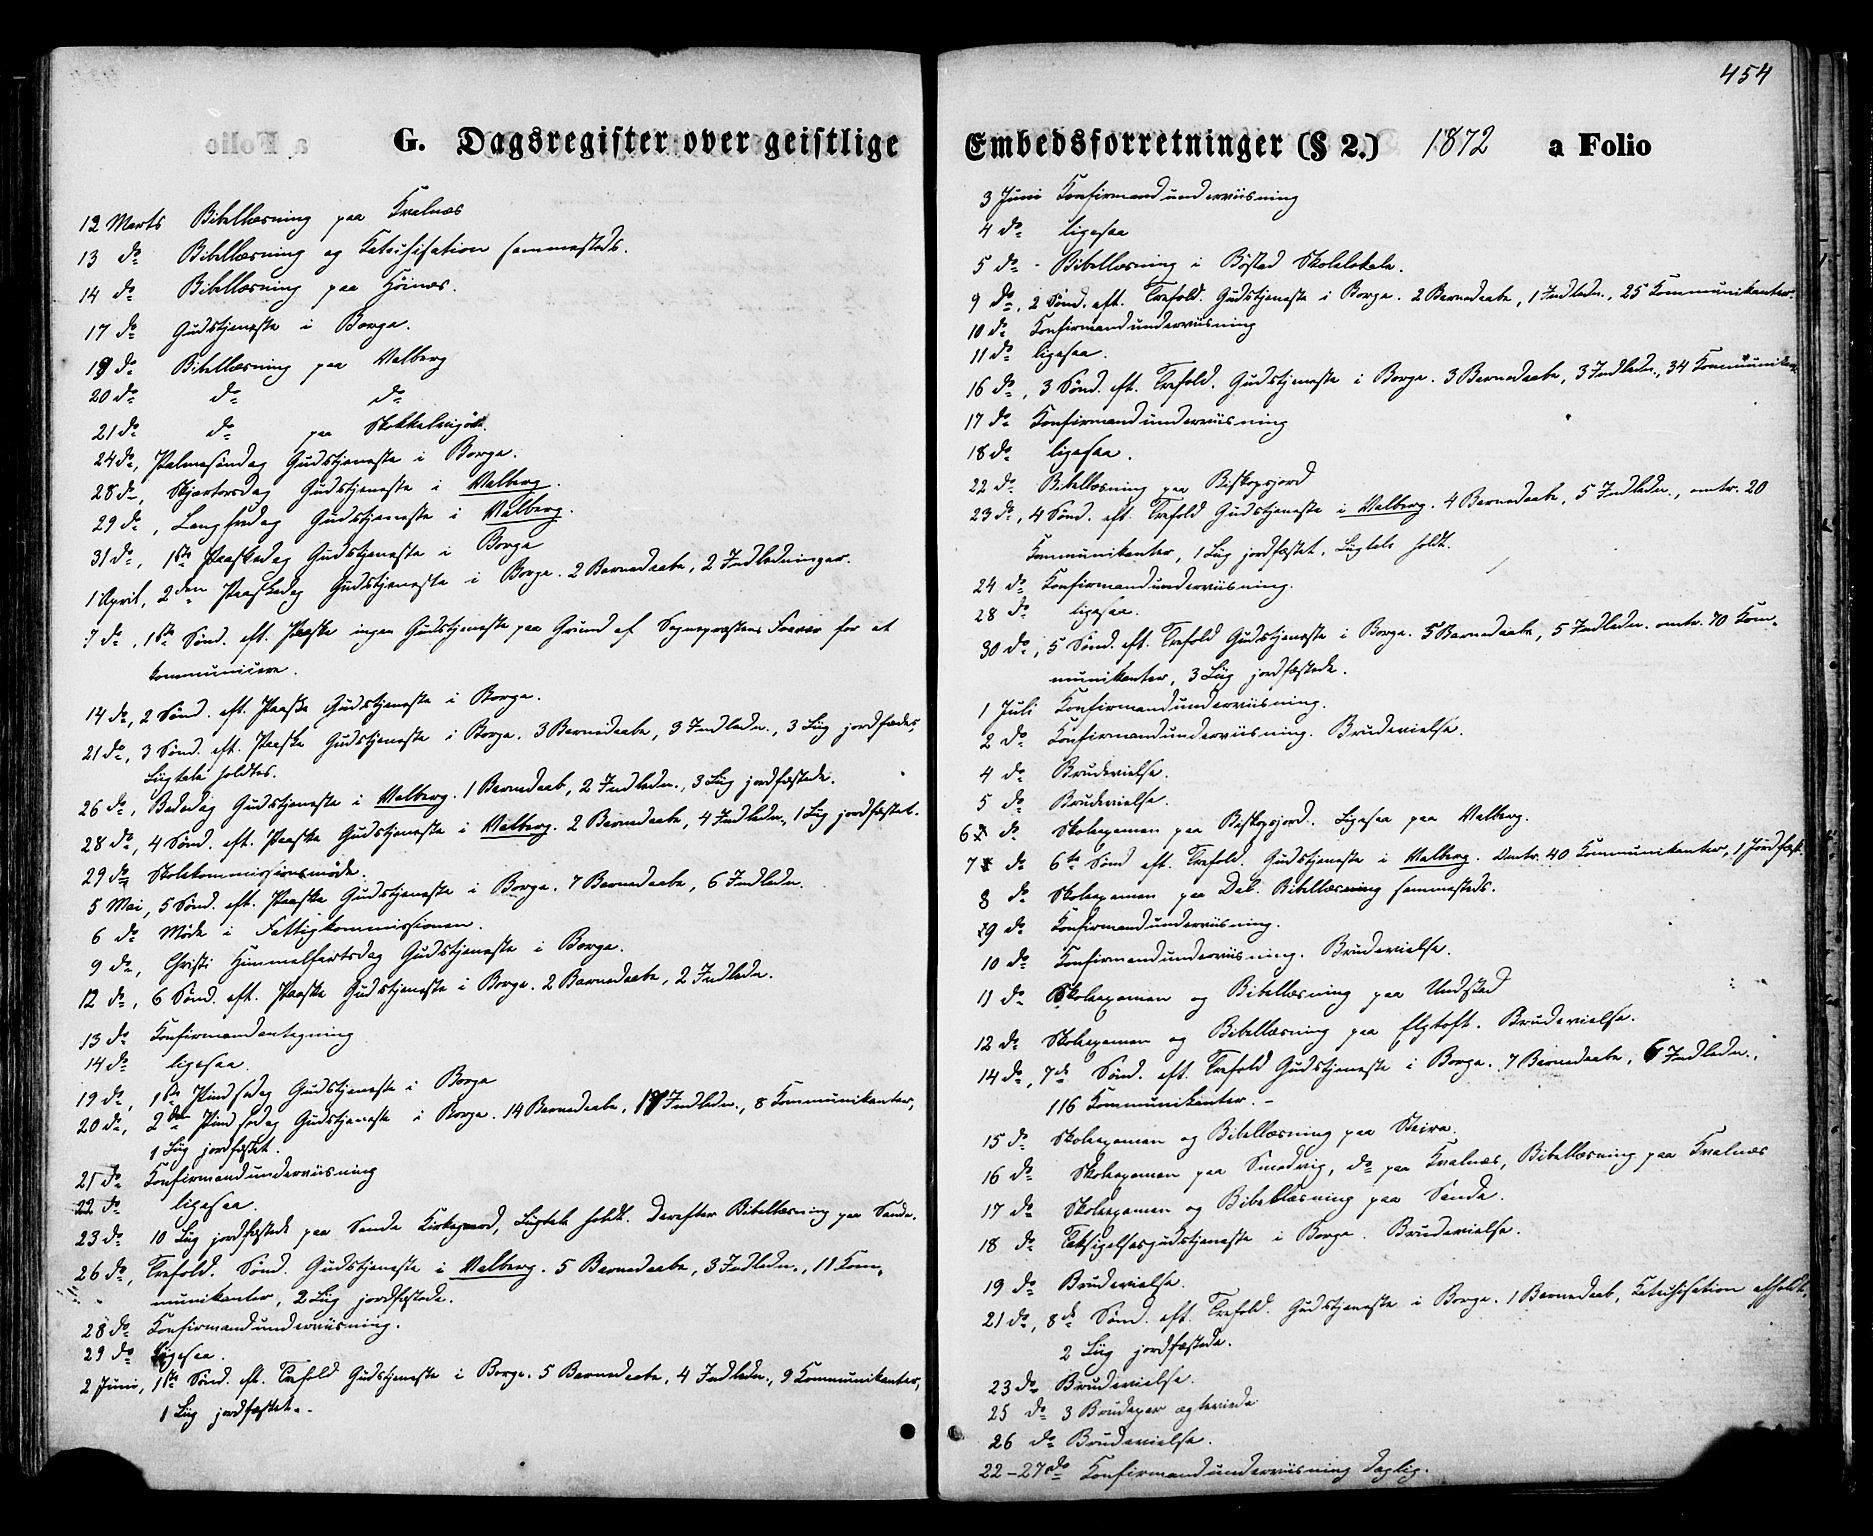 454
G. Dagsregister over geistlige
12 Marts Bibellæsning paa Kvalnæs
13 do Bibellæsning og Katechisation sammesteds.
14 do Bibellæsning paa
17 do Gudstjeneste i Borge.
19 do Bibellæsning paa Valberg
20 do do do
21 do do paa
24 do, Palmesöndag Gudstjeneste i Borge.
28 do, Skjærtorsdag Gudstjeneste i Valberg.
29 do, Langfredag Gudstjeneste i Valberg.
31 do, 1ste Paaskedag Gudstjeneste i Borge
1 April, 2den Paaskedag Gudstjeneste i Borge. 2 Barnedaabe, 2 Indledninger.
7 do, 1ste Sönd. eft. Paaske ingen Gudstjeneste paa Grund af Sognepræstens Fravær for at
kommunicere.
14 do, 2 Sönd. eft. Paaske Gudstjeneste i Borge.
21 do, 3 Sönd. eft. Paaske Gudstjeneste i Borge. 3 Barnedaabe, 3 Indledn., 3 Liig jordfæstes,
Liigtale holdtes.
26 do, Bededag Gudstjeneste i Valberg. 1 Barnedaab, 2 Indledn., 3 Liig jordfæstede.
28 do, 4 Sönd. eft. Paaske Gudstjeneste i Valberg. 2 Barnedaabe, 4 Indledn., 1 Liig jordfæstet.
29 do Skolekommissionsmöde.
5 Mai, 5 Sönd. eft. Paaske Gudstjeneste i Borge. 7 Barnedaabe, 6 Indledn.
6 do Möde i Fattigkommissionen.
9 do, Christi Himmelfartsdag Gudstjeneste i Borge.
12 do, 6 Sönd. eft. Paaske Gudstjeneste i Borge. 2 Barnedaabe, 2 Indledn.
13 do Konfirmandantegning
14 do ligesaa.
19 do, 1ste Pindsedag Gudstjeneste i Borge
20 do, 2den Pindsedag Gudstjeneste i Borge. 14 Barnedaabe, Indledn., 8 Kommunikanter,
1 Liig jordfæstet.
21 do Konfirmandundervisning
22 do ligesaa.
23 do 10 Liig jordfæstede paa Sande Kirkegaard, Liigtale holdt. Derefter Bibellæsning paa Sande.
26 do, Trefold. Sönd. Gudstjeneste i Valberg. 5 Barnedaabe, 3 Indledn., 11 Kom-
munikanter, 2 Liig jordfæstede.
28 do Konfirmandundervisning.
29 do Ligesaa.
2 Juni, 1ste Sönd. eft. Trefold Gudstjeneste i Borge. 5 Barnedaabe, 4 Indledn., 9 Kommunikanter,
1 Liig jordfæstet.
Embedsforretninger (§ 2.) 1872 a Folio
3 Juni Konfirmandundervisning
4 do ligesaa
5 do Bibellæsning i Böstad Skolelokale.
9 do, 2 Sönd. eft. Trefold. Gudstjeneste i Borge. 2 Barnedaabe, 1 Indledn., 25 Kommunikanter.
10 do Konfirmandundervisning
11 do ligesaa.
16 do, 3 Sönd. eft. Trefold. Gudstjeneste i Borge. 3 Barnedaabe, 3 Indledn., 34 Kommunikan.
17 do Konfirmandundervisning
18 do ligesaa.
22 do Bibellæsning paa Biskopsjord
23 do, 4 Sönd. eft. Trefold Gudstjeneste i Valberg. 4 Barnedaabe, 5 Indledn., omtr. 20
Kommunikanter, 1 Liig jordfæstet, Liigtale holdt.
24 do Konfirmandundervisning.
28 do ligesaa.
30 do, 5 Sönd. eft. Trefold Gudstjeneste i Borge. 5 Barnedaabe, 5 Indledn. omtr. 70 Kom-
munikanter, 3 Liig jordfæstede.
1 Juli Konfirmandundervisning.
2 do Konfirmandundervisning. Brudevielse.
4 do Brudevielse.
5 do Brudevielse.
6 do Skoleexamen paa Biskopsjord. Ligesaa paa Valberg.
7 do 6te Sönd eft. Trefold. Gudstjeneste i Valberg. Omtr. 40 Kommunikanter, 1 Jordfæst.
8 do Skoleexamen paa Dal. Bibellæsning sammesteds.
9 do Konfirmandundervisning.
10 do Konfirmandundervisning. Brudevielse.
11 do Skoleexamen og Bibellæsning paa Undstad
12 do Skoleexamen og Bibellæsning paa Elgtoft. Brudevielse.
14 do, 7de Sönd. eft. Trefold Gudstjeneste i Borge. 7 Barnedaabe, 6 Indledn.,
116 Kommunikanter.
15 do Skoleexamen og Bibellæsning paa Steira.
16 do Skoleexamen paa Smedvig, do paa Kvalnæs, Bibellæsning paa Kvalnæs
17 do Skoleexamen og Bibellæsning paa Sande.
18 do Taksigelsesgudstjeneste i Borge. Brudevielse.
19 do Brudevielse.
21 do, 8de Sönd. eft. Trefold. Gudstjeneste i Borge. 1 Barnedaab, Katechisation afholdt,
2 Liig jordfæstede.
23 do Brudevielse.
25 do 3 Brudepar ægteviede
26 do Brudevielse.
22-27 do Konfirmandundervisning daglig.